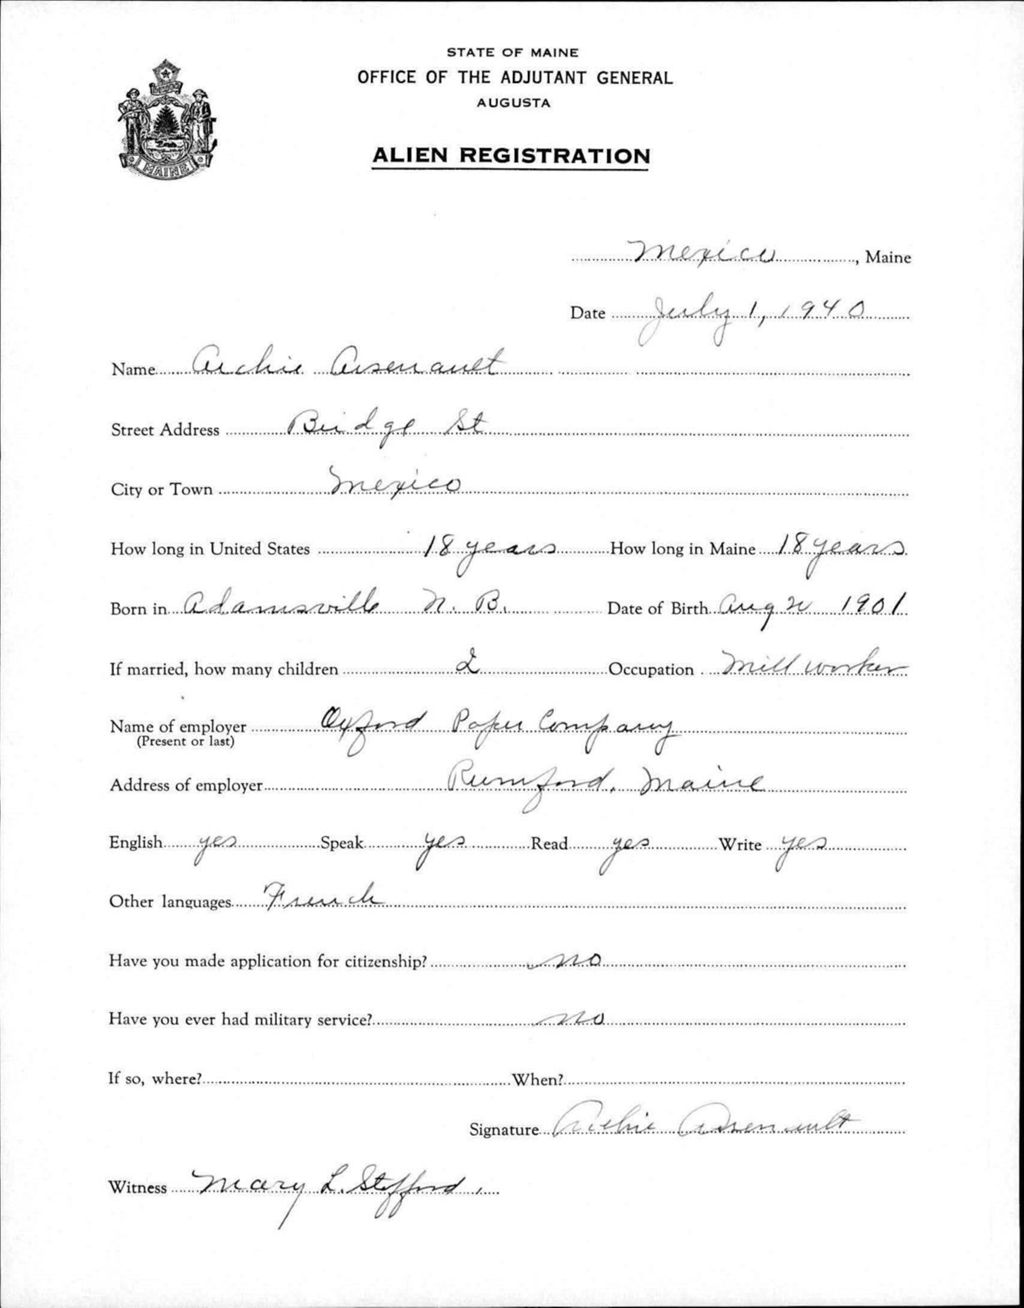 STATE OF MAINE
OFFICE OF THE ADJUTANT GENERAL
AUGUSTA
ALIEN REGISTRATION
MAINE
Mexico, Maine
Date July 1, 1940
Name Archie Arsenault
Street Address Bridge St
City or Town Mexico
How long in United States 18 years How long in Maine 18 years
Born in Adamsville N. B. Date of Birth Aug 1901
If married, how many children 2 Occupation Mill worker
Name of employer Oxford Paper Company
(Present or last)
Address of employer Rumford, Maine
English yes Speak yes Read yes Write yes
Other languages French
Have you made application for citizenship? no
Have you ever had military service? no
If so, where? When?
Signature Archie Arsenault
Witness Mary L. Stafford